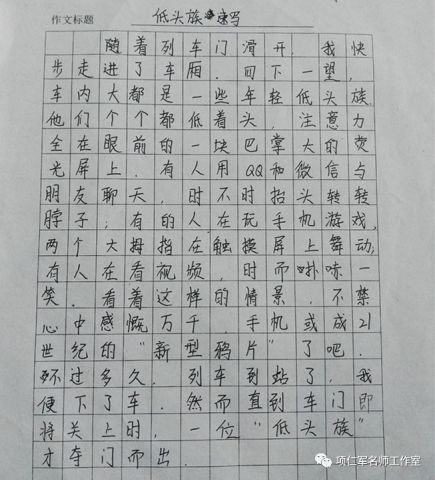 作文标题 低头族速写
随着列车门滑开，我快
步走进了车厢．四下一望，
车内大都是一些年轻低头族．
他们个个都低着头，注意力
全在眼前的一块巴掌大的荧
光屏上．有人用QQ和微信与
朋友聊天，时不时抬头转转
脖子；有的人在玩手机游戏，
两个大拇指在触摸屏上舞动；
有人在看视频，时而噗哧一
笑．看着这样的情景，不禁
心中感慨万千．手机或成21
世纪的"新型鸦片"了吧．
不过多久，列车到站了，我
便下了车．然而直到车门即
将关上时，一位"低头族"
才夺门而出．
项仁军名师工作室